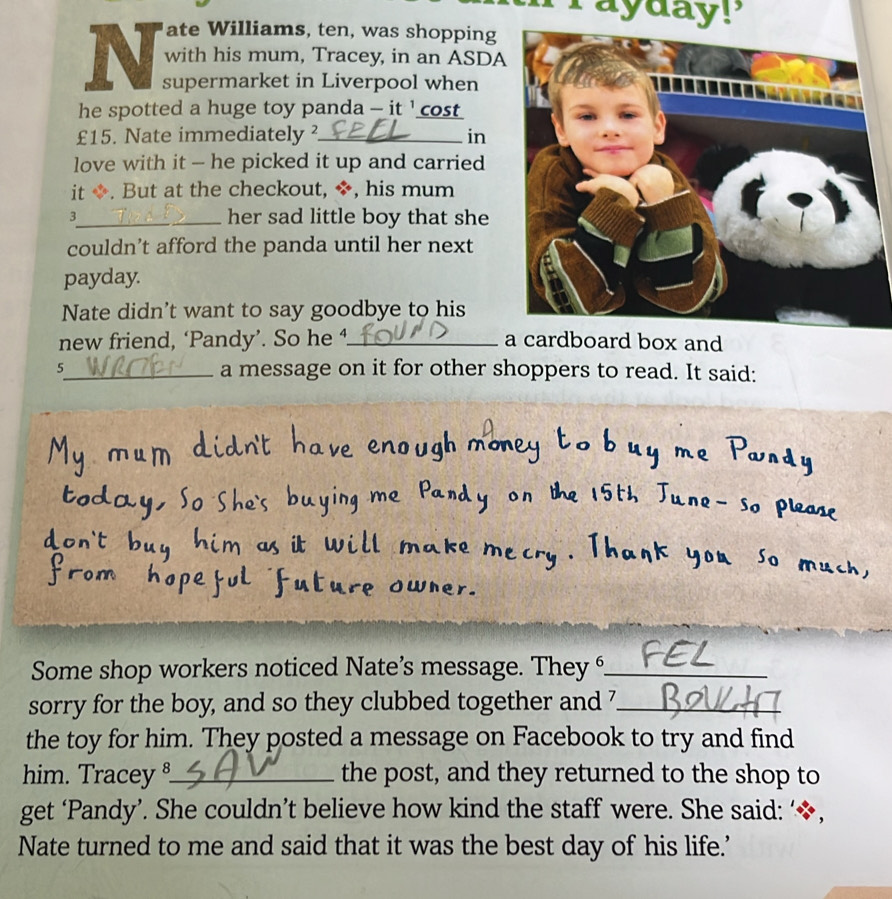 Payday!'
Nate Williams, ten, was shopping
with his mum, Tracey, in an ASDA
supermarket in Liverpool when
he spotted a huge toy panda – it ¹ cost
£15. Nate immediately ² FEEL in
love with it – he picked it up and carried
it ❖. But at the checkout, ❖, his mum
³ her sad little boy that she
couldn't afford the panda until her next
payday.
Nate didn't want to say goodbye to his
new friend, 'Pandy'. So he ⁴ FOUND a cardboard box and
⁵ a message on it for other shoppers to read. It said:
My mum didn't have enough money to buy me Pandy
today, so she's buying me Pandy on the 15th June - so please
don't buy him as it will make me cry. Thank you so much,
from hopeful future owner.
Some shop workers noticed Nate's message. They ⁶ FEL
sorry for the boy, and so they clubbed together and ⁷
the toy for him. They posted a message on Facebook to try and find
him. Tracey ⁸ SAW the post, and they returned to the shop to
get 'Pandy'. She couldn't believe how kind the staff were. She said: '❖,
Nate turned to me and said that it was the best day of his life.'